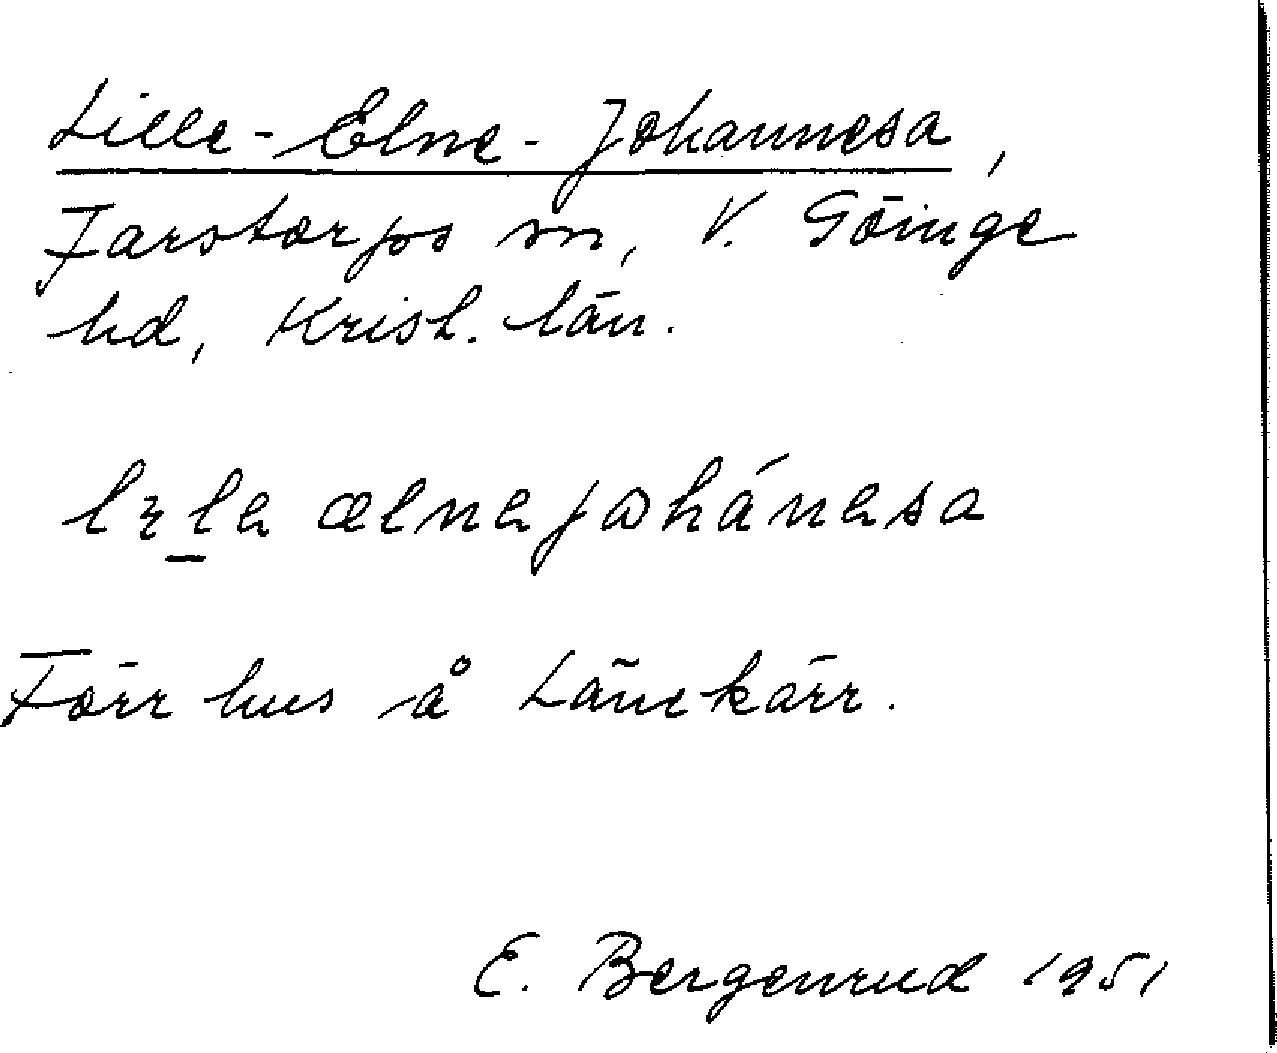 Lille-Elne-Johannesa,
Farstorps sn, V. Göinge
hd, Krist. län.
lɪl̲ə ælnəjɷhánəsa
Förr hus å Länekärr.
E. Bergenrud 1951